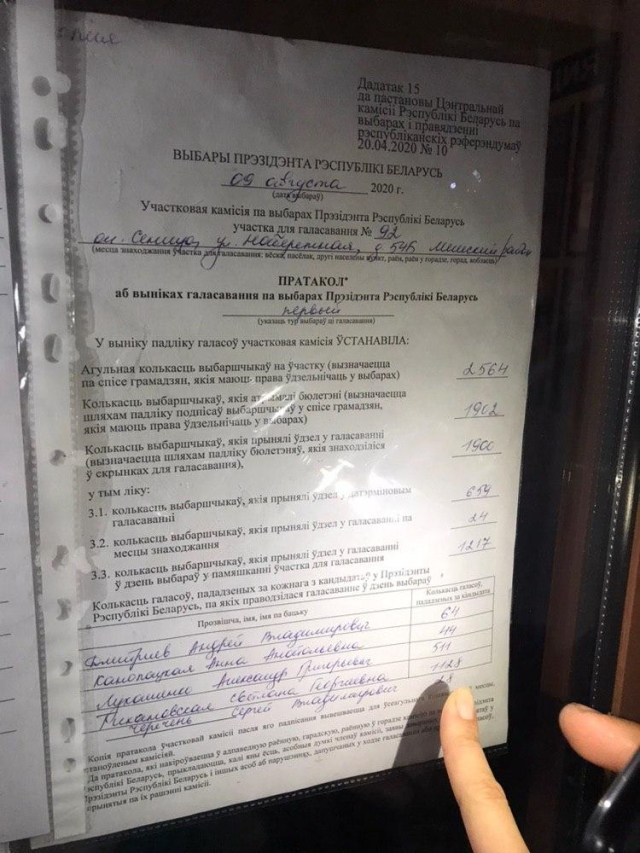 Копия
Дадатак 15
да пастановы Цэнтральнай
камісіі Рэспублікі Беларусь па
выбарах і правядзенні
рэспубліканскіх рэферэндумаў
20.04.2020 № 10
ВЫБАРЫ ПРЭЗІДЭНТА РЭСПУБЛІКІ БЕЛАРУСЬ
09 августа 2020 г.
(дата выбараў)
Участковая камісія па выбарах Прэзідэнта Рэспублікі Беларусь
участка для галасавання № 92
аг. Сеница, ул. Набережная, д. 54Б Минский район
(месца знаходжання ўчастка для галасавання: вёска, пасёлак, другі населены пункт, раён, раён у горадзе, горад, вобласць)
ПРАТАКОЛ
аб выніках галасавання па выбарах Прэзідэнта Рэспублікі Беларусь
первый
(указаць тур выбараў ці галасавання)
У выніку падліку галасоў участковая камісія ЎСТАНАВІЛА:
Агульная колькасць выбаршчыкаў на ўчастку (вызначаецца
па спісе грамадзян, якія маюць права ўдзельнічаць у выбарах) 2564
Колькасць выбаршчыкаў, якія атрымалі бюлетэні (вызначаецца
шляхам падліку подпісаў выбаршчыкаў у спісе грамадзян,
якія маюць права ўдзельнічаць у выбарах) 1902
Колькасць выбаршчыкаў, якія прынялі ўдзел у галасаванні
(вызначаецца шляхам падліку бюлетэняў, якія знаходзіліся
ў скрынках для галасавання), 1900
у тым ліку:
3.1. колькасць выбаршчыкаў, якія прынялі ўдзел у датэрміновым
галасаванні 659
3.2. колькасць выбаршчыкаў, якія прынялі ўдзел у галасаванні па
месцы знаходжання 24
3.3. колькасць выбаршчыкаў, якія прынялі ўдзел у галасаванні
ў дзень выбараў у памяшканні ўчастка для галасавання 1217
Колькасць галасоў, пададзеных за кожнага з кандыдатаў у Прэзідэнты
Рэспублікі Беларусь, па якіх праводзілася галасаванне ў дзень выбараў
Прозвішча, імя, імя па бацьку Колькасць галасоў,
пададзеных за кандыдата
Дмитриев Андрей Владимирович 64
Канопацкая Анна Анатольевна 44
Лукашенко Александр Григорьевич 511
Тихановская Светлана Георгиевна 1128
Черечень Сергей Владимирович
Копія пратакола участковай камісіі пасля яго падпісання вывешваецца для ўсеагульнага
устаноўленым камісіяй.
Да пратакола, які накіроўваецца ў адпаведную раённую, гарадскую, раённую ў горадзе
Рэспублікі Беларусь, прыкладаюцца, калі яны ёсць, асобныя думкі членаў камісіі, заявы
Прэзідэнты Рэспублікі Беларусь і іншых асоб аб парушэннях, дапушчаных у ходзе галасавання
прынятыя па іх рашэнні камісіі.